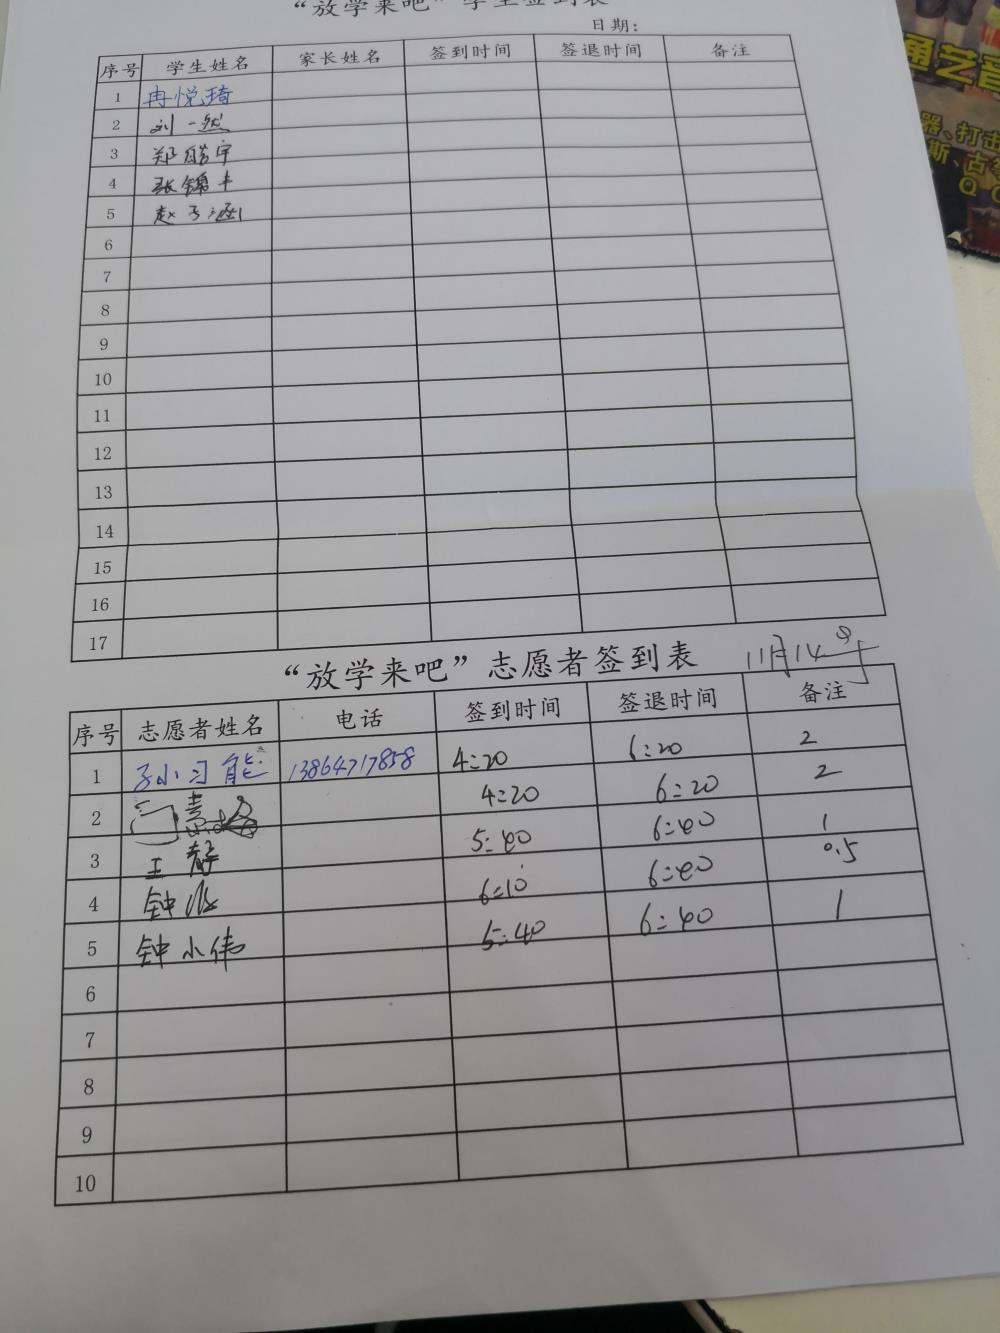 “放学来吧”学生签到表
日期：
序号 学生姓名 家长姓名 签到时间 签退时间 备注
1 冉悦琦
2 刘一然
3 郑皓宇
4 张锦丰
5 赵子涵
6
7
8
9
10
11
12
13
14
15
16
17
“放学来吧”志愿者签到表 11月14号
序号 志愿者姓名 电话 签到时间 签退时间 备注
1 孙小习能 13864717858 4:20 6:20 2
2 4:20 6:20 2
3 王静 5:40 6:40 1
4 钟 6:10 6:40 0.5
5 钟小伟 5:40 6:40 1
6
7
8
9
10
通艺音
器、打击
斯、古筝
Q